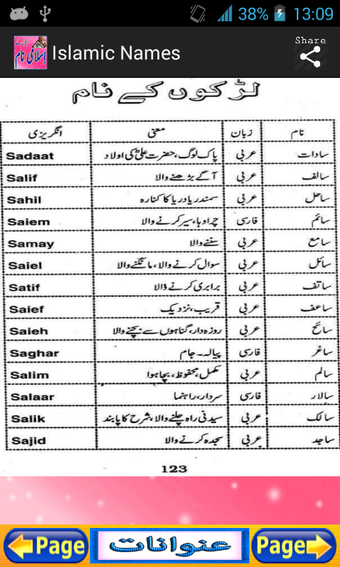 38% 13:09
اسلامی نام
Islamic Names
Share
لڑکوں کے نام
نام زبان معنی انگریزی
سادات عربی پاک لوگ، حضرت علیؓ کی اولاد Sadaat
سالف عربی آگے بڑھنے والا Salif
ساحل عربی سمندر یا دریا کا کنارہ Sahil
سائم فارسی چرواہا، سیر کرنے والا Saiem
سامع عربی سننے والا Samay
سائل عربی سوال کرنے والا، مانگنے والا Saiel
ساتف عربی برابری کرنے والا Satif
ساعف عربی قریب، نزدیک Saief
سائح عربی روزہ دار، گناہوں سے بچنے والا Saieh
ساغر فارسی پیالہ۔ جام Saghar
سالم عربی مکمل، محفوظ، بچا ہوا Salim
سالار فارسی سردار، راہنما Salaar
سالک عربی سیدھی راہ چلنے والا، شرح کا پابند Salik
ساجد عربی سجدہ کرنے والا Sajid
123
Page عنوانات Page